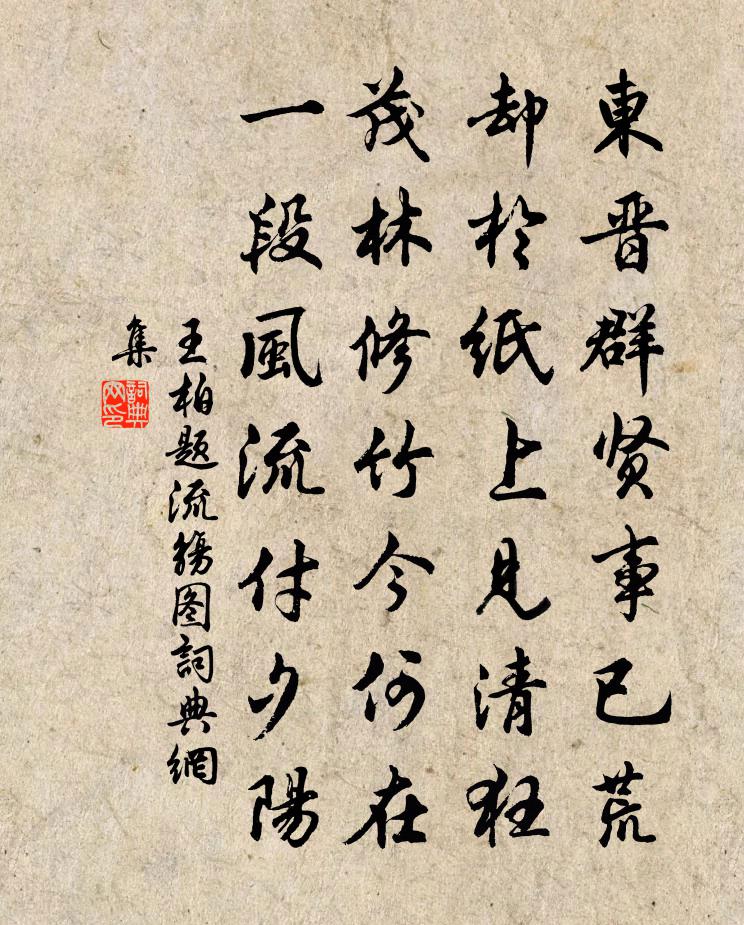 東晋群贤事已荒
却於纸上見清狂
茂林修竹今何在
一段風流付夕陽
王柏题流觴图詞典網
集
詞典网印